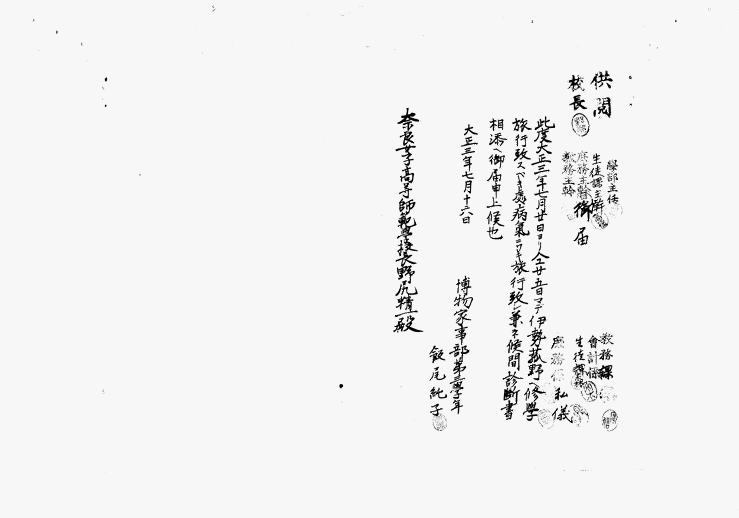 供閲
校長
學部主任
生徒課主幹
庶務主幹
教務主幹
御届
教務課
會計係
生徒課
庶務係
私儀
此度大正三年七月廿日ヨリ仝廿五日マデ伊勢菰野ヘ修學
旅行致スベキ處病氣ニツキ旅行致シ兼ネ候間診断書
相添ヘ御届申上候也
大正三年七月十六日
博物家事部第三學年
飯尾純子
奈良女子高等師範學校長野尻精一殿